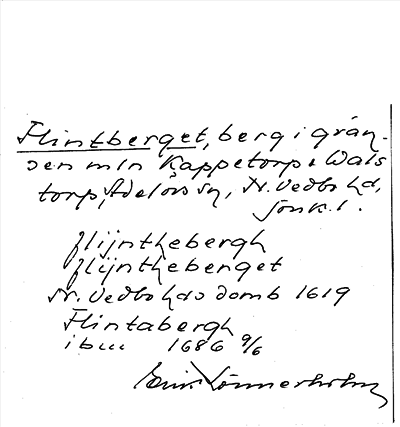 Flintberget, berg i grän-
sen mln Kappetorp o Wals
torp, Adelövs sn, N. Vedbo hd,
Jönk. l.
flijnthebergh
flijntheberget
N. Vedbo hds domb 1619
Flintabergh
ib 1686 9/6
Einar Lönnerholm